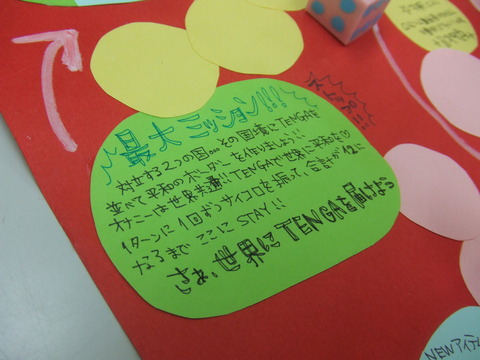 最大ミッション!!!
ストップ!!
対立する2つの国…その国境にTENGAを
並べて平和のボーダーを作りましょう!!
オナニーは世界共通!TENGAで世界に平和を♡
1ターンに1回ずつサイコロを振って、合計が12に
なるまでここにSTAY!!
さぁ、世界にTENGAを届けなら
NEWアイテム